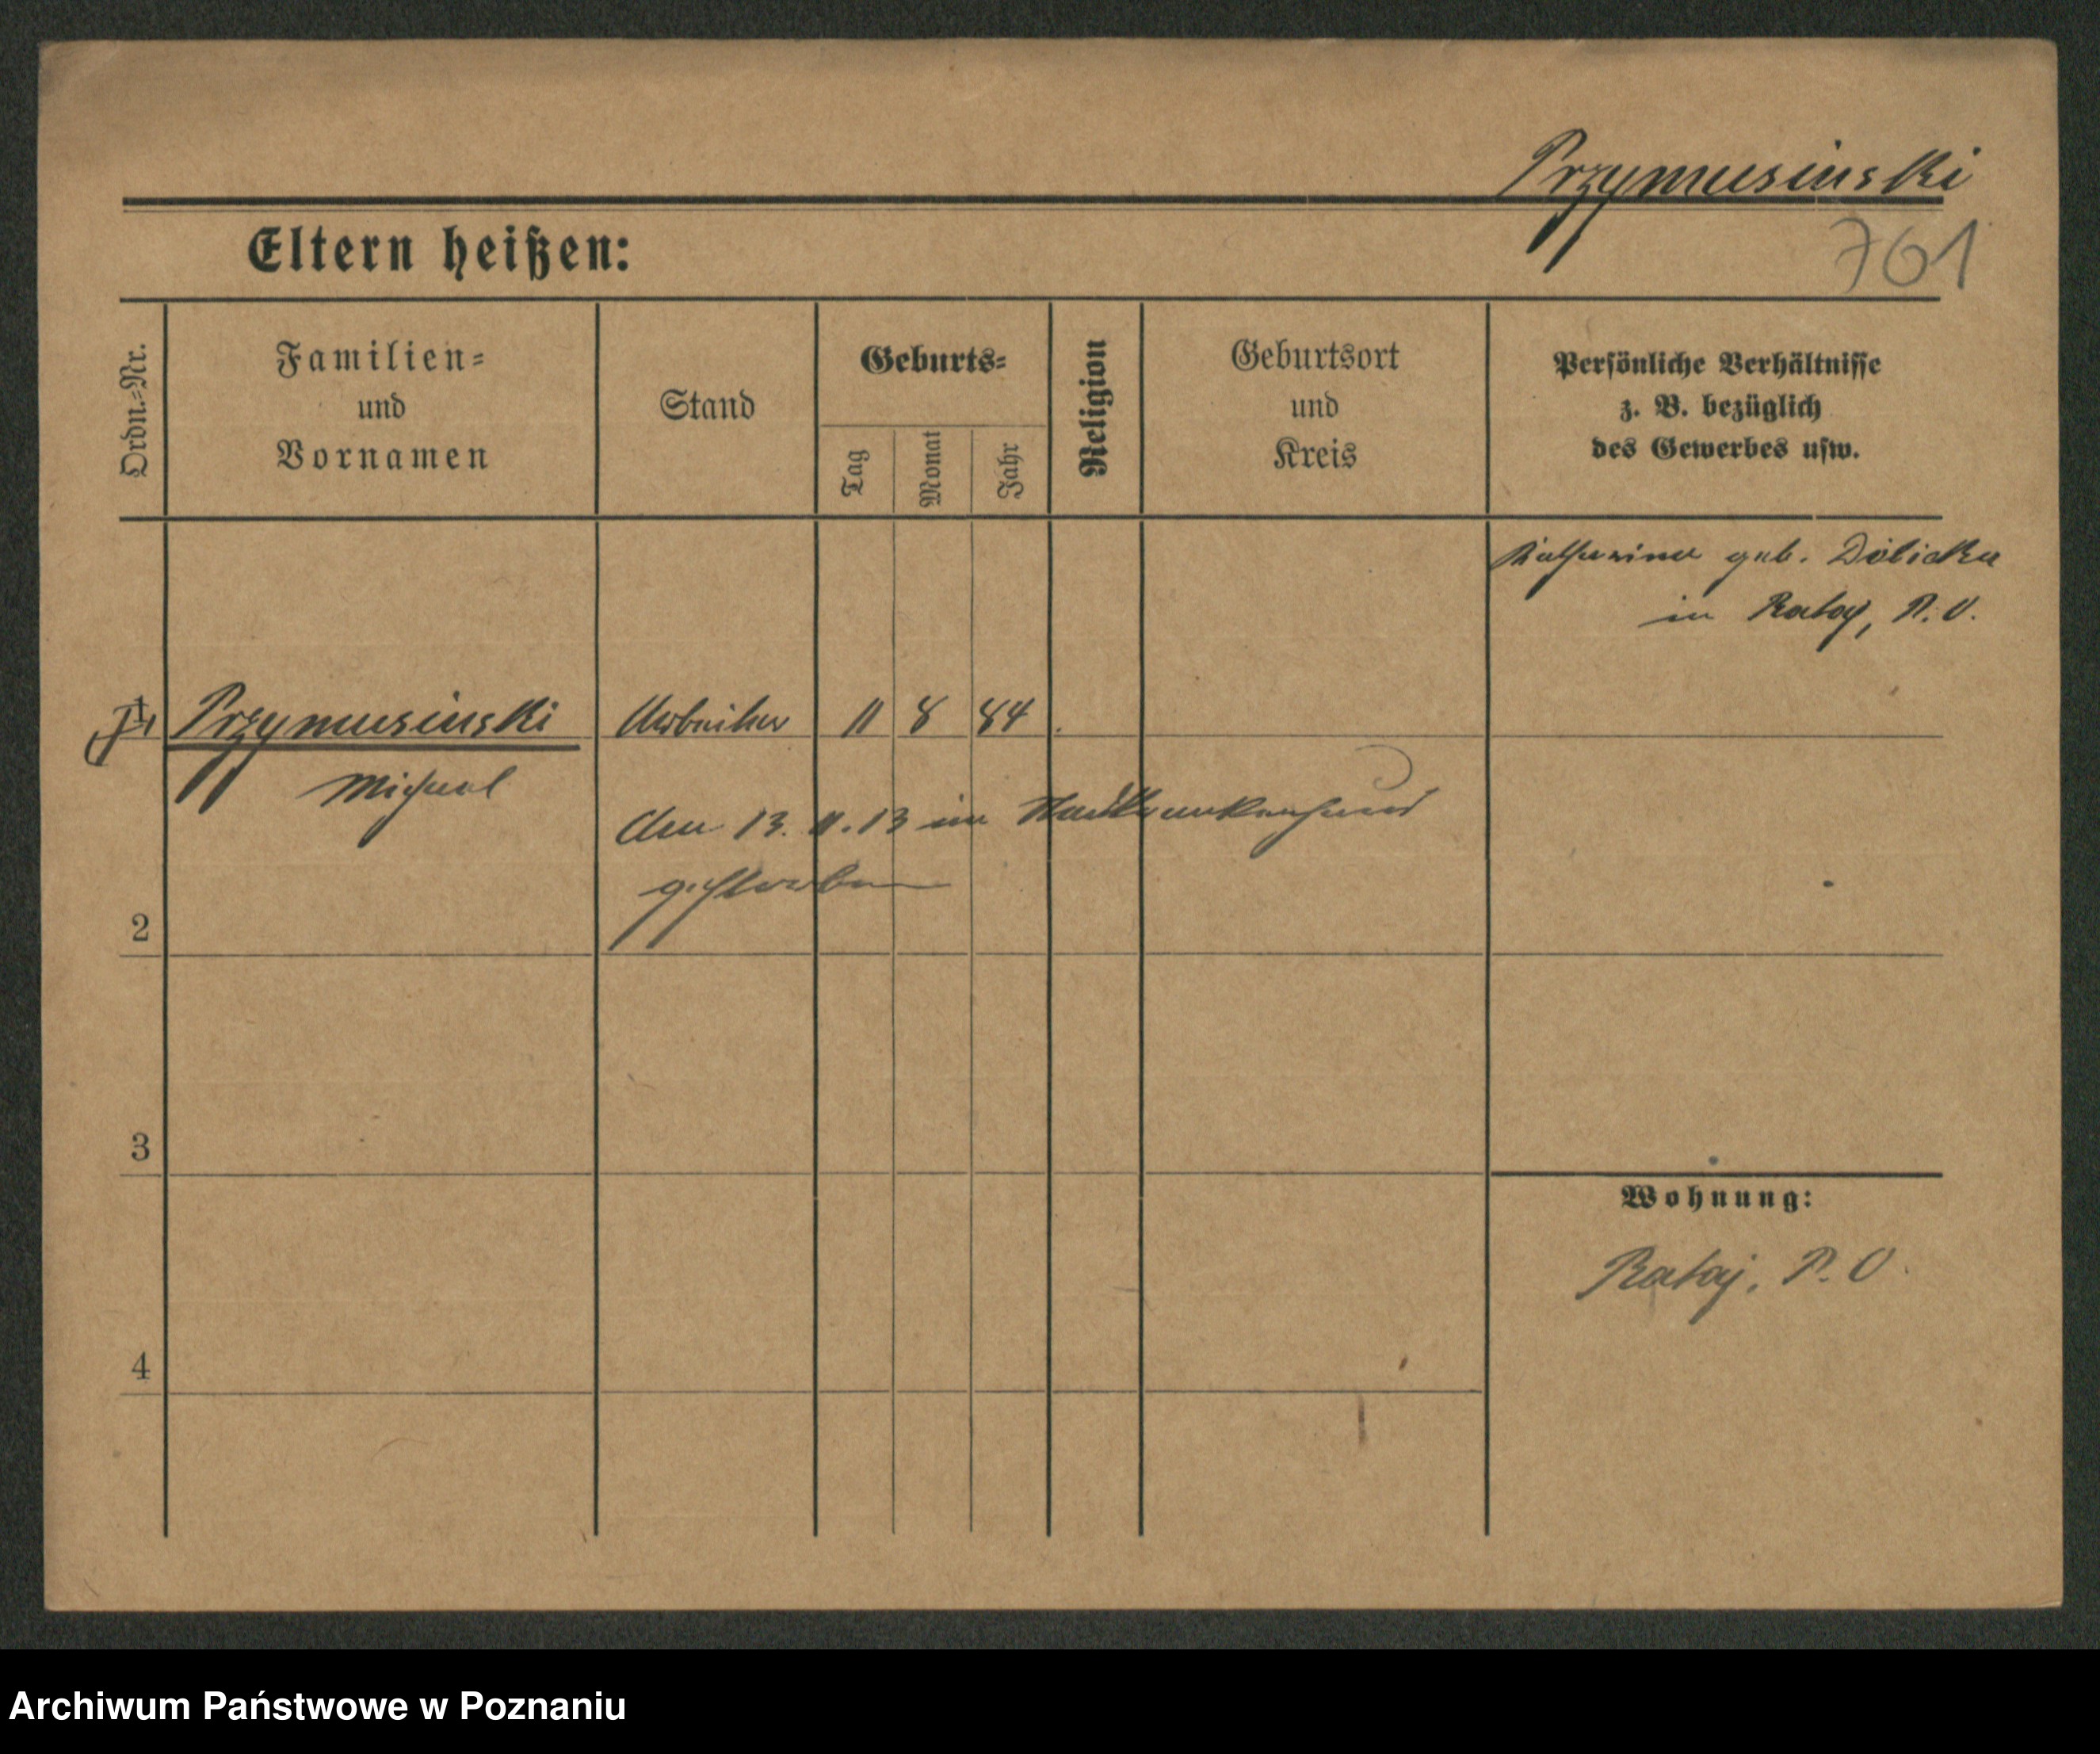 Przymusinski
761
Eltern heißen:
Ordn.-Nr.
Familien-
und
Vornamen
Stand
Geburts-
Tag
Monat
Jahr
Religion
Geburtsort
und
Kreis
Persönliche Verhältnisse
z. B. bezüglich
des Gewerbes usw.
Katharina geb.
in Rataj, P. O.
Przymusinski Arbeiter 11 8 84
Michael
Am 13. 11. 13 im Stadtkrankenhaus
gestorben
2
3
Wohnung:
Rataj, P. O.
4
Archiwum Państwowe w Poznaniu